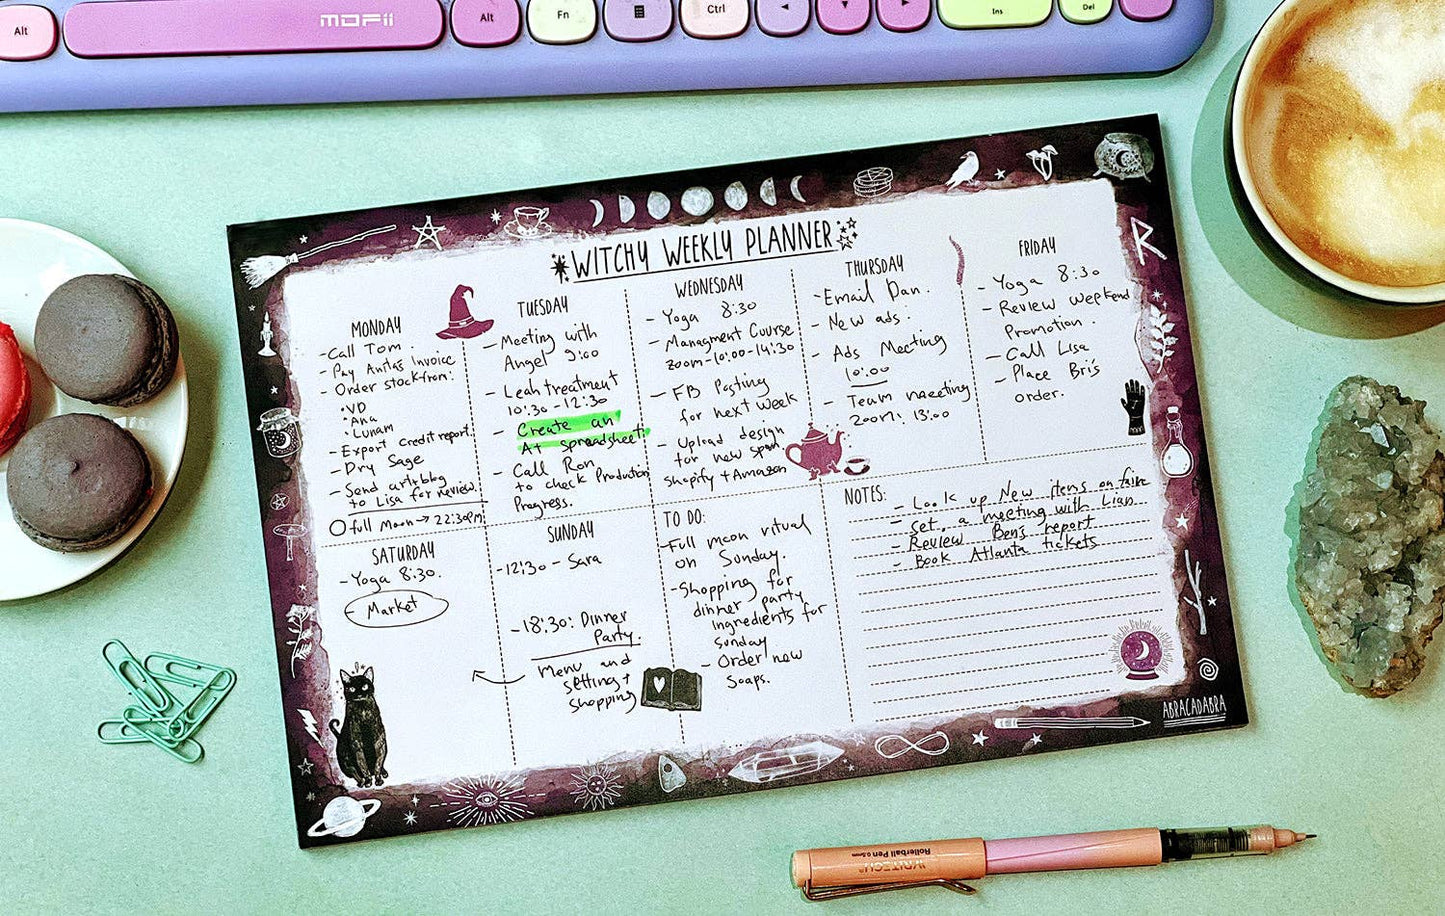 Alt
MOFii
Alt
Fn
Ctrl
Ins
Del
WITCHY WEEKLY PLANNER
MONDAY
- Call Tom.
- Pay Anita's Invoice
- Order stock from:
• VD
• Ana
• Lunam
- Export Credit report
- Dry Sage
- Send art+blog
to Lisa for review.
full Moon → 22:30pm
TUESDAY
- Meeting with
Angel 9:00
- Leah treatment
10:30 - 12:30
- Create an
A+ spreadsheet
- Call Ron
to check Production
Progress.
WEDNESDAY
- Yoga 8:30
- Managment Course
zoom - 10:00 - 14:30
- FB Posting
for next week
- Upload design
for new span
shopify + Amazon
THURSDAY
- Email Dan.
- New ads.
- Ads Meeting
10:00
- Team meeting
zoom: 13:00
FRIDAY
- Yoga 8:30
- Review weekend
Promotion.
- Call Lisa
- Place Bri's
order.
SATURDAY
- Yoga 8:30.
- Market
SUNDAY
- 12:30 - Sara
- 18:30: Dinner
Party.
Menu and
setting +
shopping
TO DO:
- Full moon ritual
on Sunday.
- Shopping for
dinner party
ingredients for
Sunday
- Order new
Soaps.
NOTES:
- Look up New items on
- set a meeting with Lian
- Review Ben's report
- Book Atlanta tickets
ABRACADABRA
WRITECH
Rollerball Pen 0.5mm